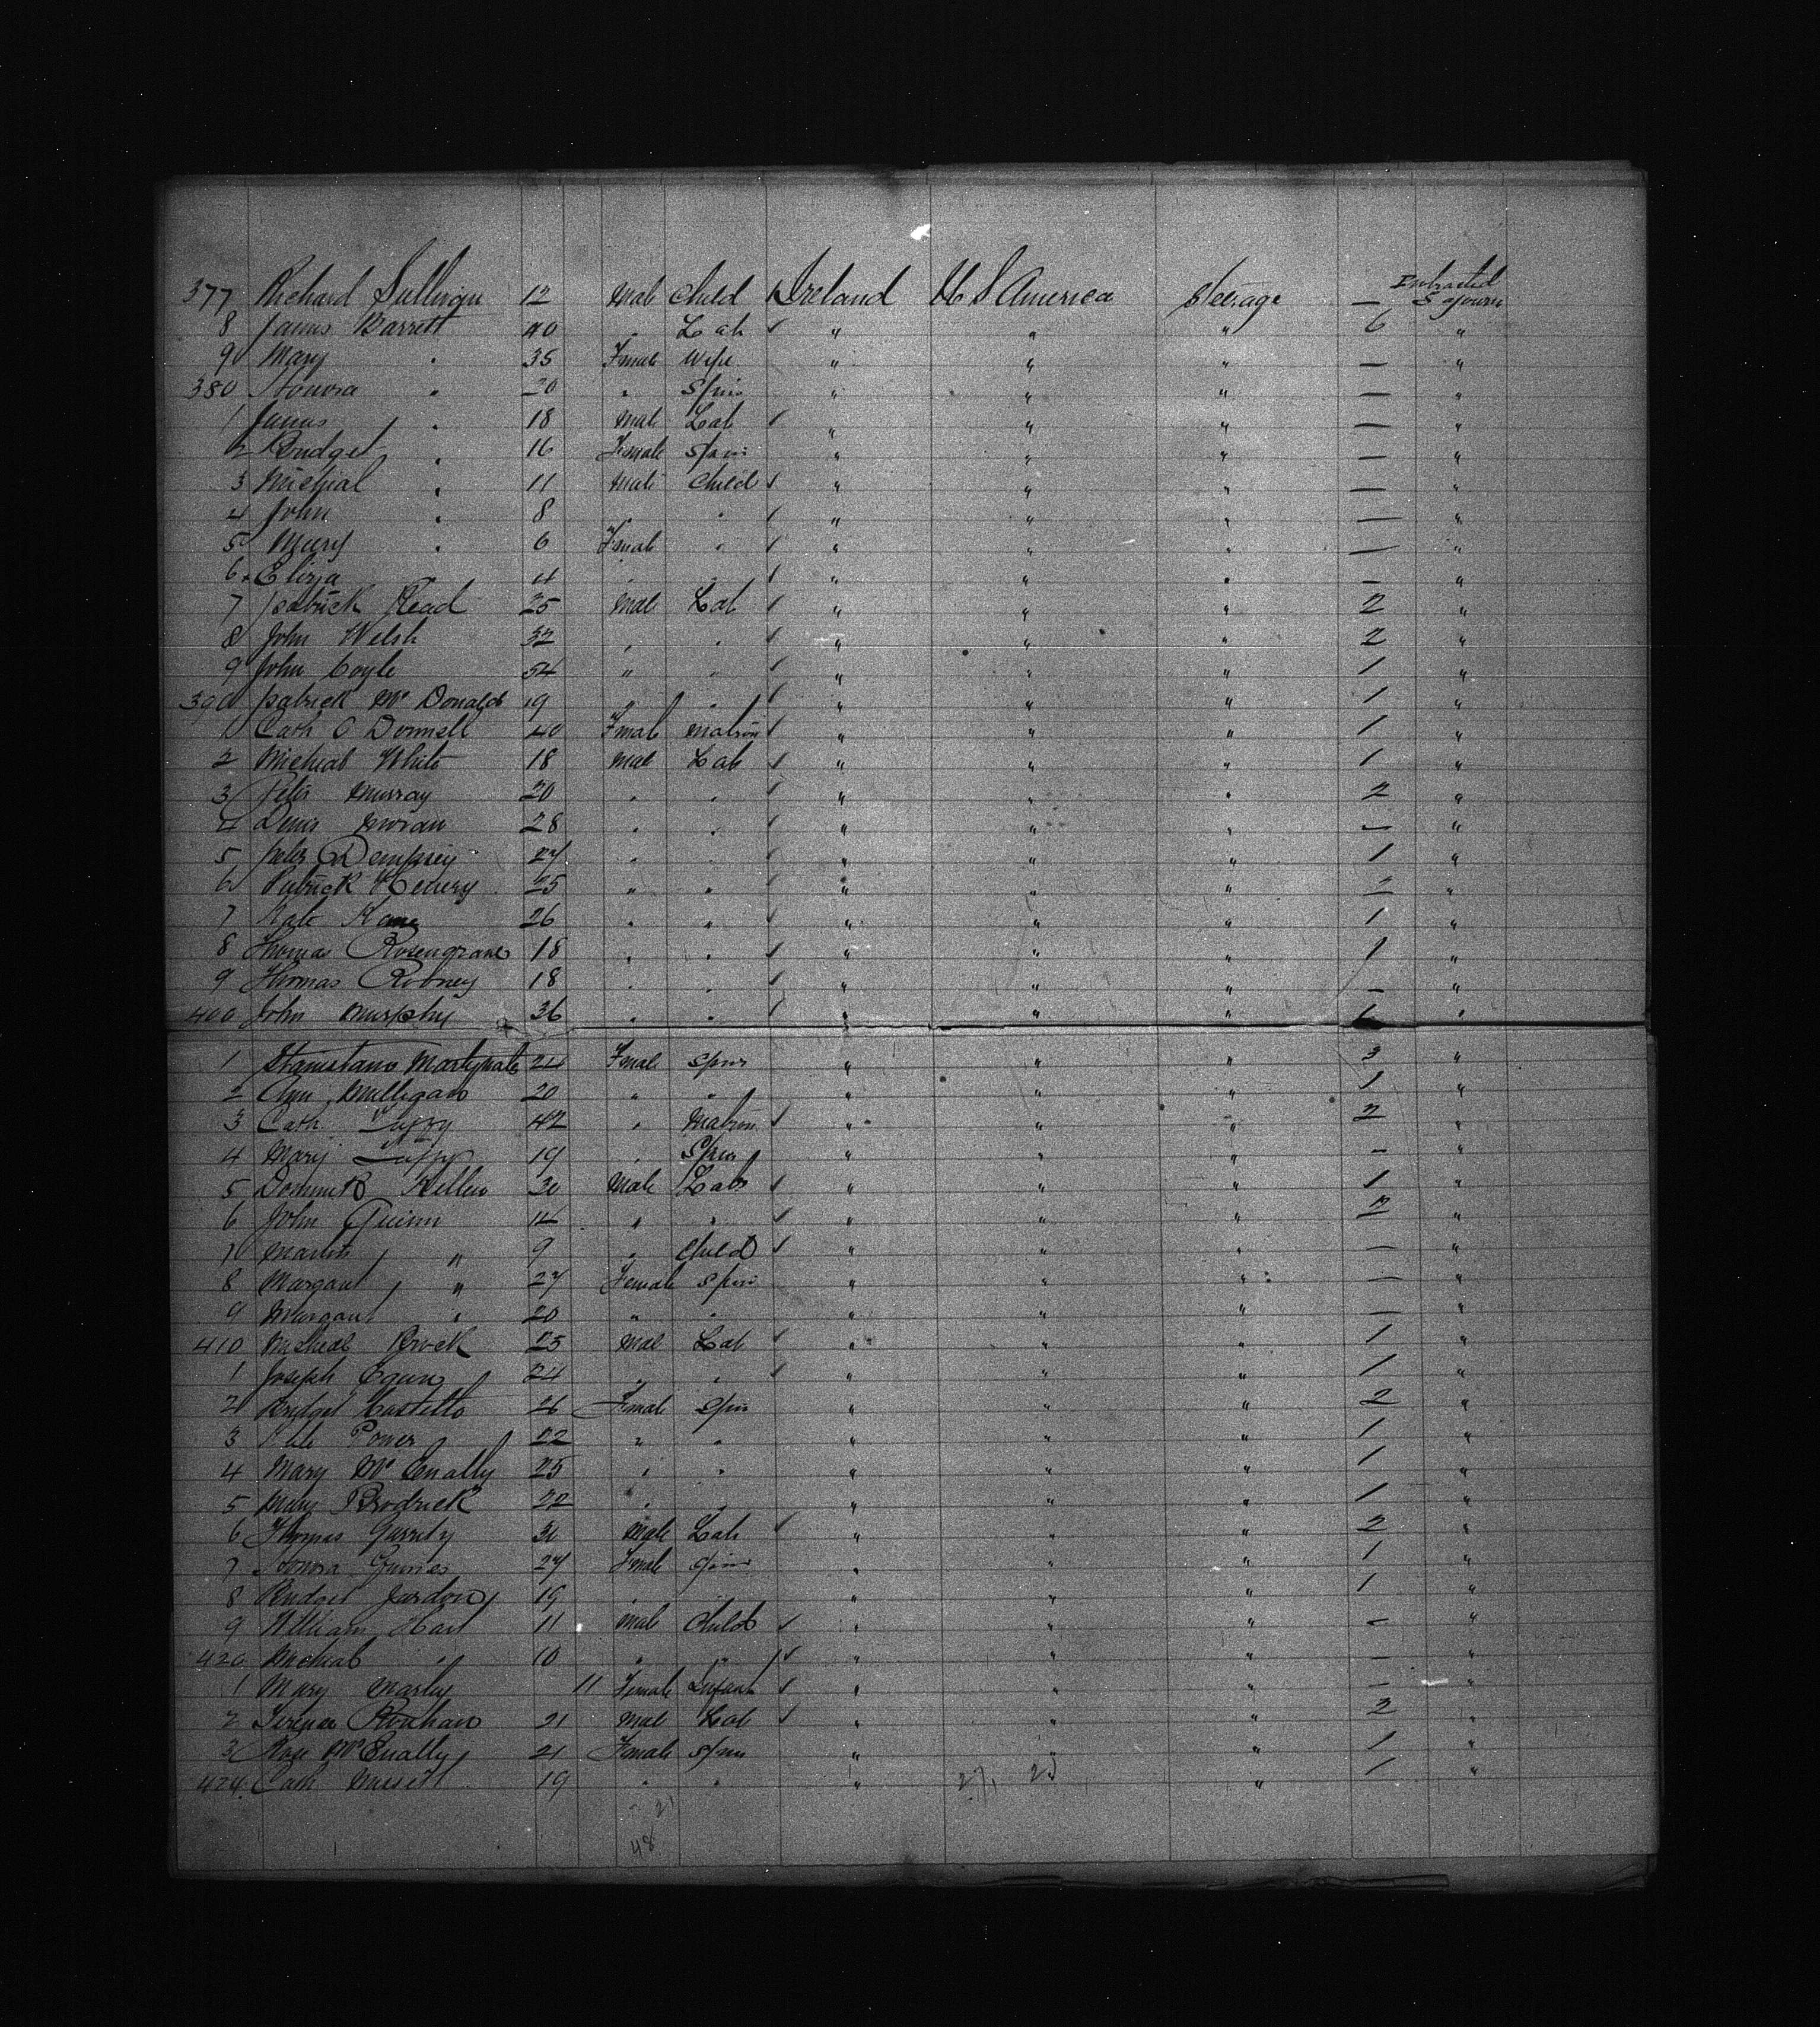 377 Richard Sullivan 12 Male Child Ireland U S America Steerage — Protracted Sojourn
8 James Barrett 40 " Lab " " " 6 "
9 Mary " 35 Female Wife " " " — "
380 Honora " 20 " Spin " " " — "
1 James " 18 Male Lab " " " — "
2 Bridget " 16 Female Spin " " " — "
3 Micheal " 11 Male Child " " " — "
4 John " 8 " " " " " — "
5 Mary " 6 Female " " " " — "
6 Eliza " 4 " " " " " — "
7 Patrick Read 25 Male Lab " " " 2 "
8 John Welsh 32 " " " " " 2 "
9 John Coyle 54 " " " " " 1 "
390 Patrick Mc Donald 19 " " " " " 1 "
1 Cath O Donnell 40 Female Matron " " " 1 "
2 Micheal White 18 Male Lab " " " 1 "
3 Peter Murray 20 " " " " " 2 "
4 Denis Moran 28 " " " " " — "
5 Peter Dempsey 27 " " " " " 1 "
6 Patrick Henery 25 " " " " " "
7 Kate 26 " " " " " 1 "
8 Thomas Rosengrave 18 " " " " " 1 "
9 Thomas 18 " " " " " — "
400 John Murphy 36 " " " " " "
1 24 Female Spin " " " 3 "
2 Ann Mulligan 20 " " " " " 1 "
3 Cath Duffy 42 " Matron " " " 2 "
4 Mary Duffy 19 " Spin " " " — "
5 Dominick Killen 30 Male Lab " " " 1 "
6 John Quinn 14 " " " " " 2 "
7 Martin " 9 " Child " " " — "
8 Margaret " 27 Female Spin " " " — "
9 Margaret " 20 " " " " " — "
410 Micheal Brock 25 Male Lab " " " 1 "
1 Joseph Egan 24 " " " " " 1 "
2 Bridget Costello 26 Female Spin " " " 2 "
3 Power 22 " " " " " 1 "
4 Mary Mc Enally 25 " " " " " 1 "
5 Mary Brodrick 22 " " " " " 1 "
6 Thomas Garrity 30 Male Lab " " " 2 "
7 Honora 27 Female Spin " " " 1 "
8 Bridget Jordon 19 " " " " " 1 "
9 William Hart 11 Male Child " " " — "
420 Micheal " 10 " " " " " — "
1 Mary Marley 11 Female Infant " " " — "
2 21 Male Lab " " " 2 "
3 Rose Mc Enally 21 Female Spin " " " 1 "
424 Cath 19 " " " " " 1 "
21
48